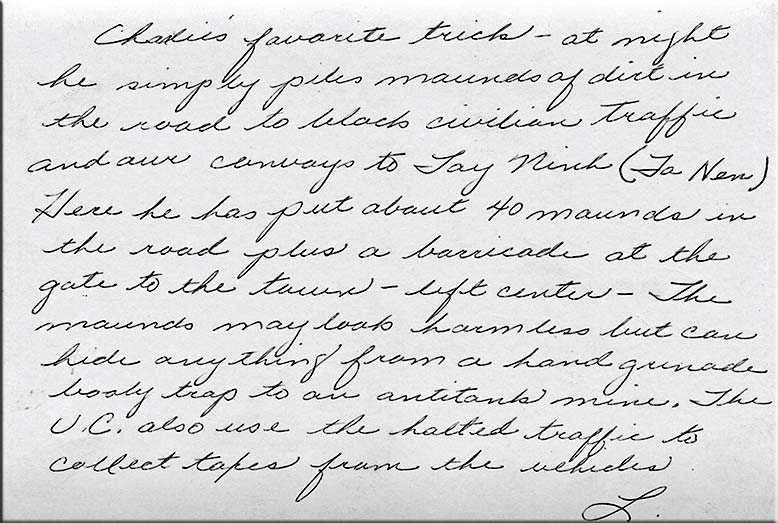 Charlie's favorite trick - at night
he simply piles mounds of dirt in
the road to block civilian traffic
and our convoys to Tay Ninh (Ta Nen)
Here he has put about 40 mounds in
the road plus a barricade at the
gate to the town - left center - The
mounds may look harmless but can
hide anything from a hand grenade
booby trap to an antitank mine. The
V.C. also use the halted traffic to
collect taxes from the vehicles
L.